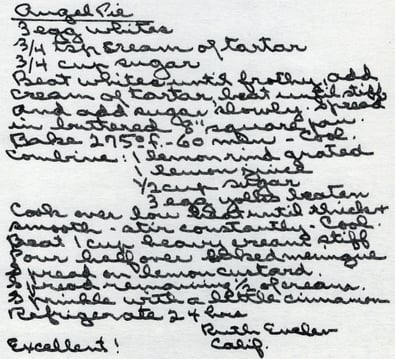 Angel Pie
3 egg whites
3/4 tsp cream of tartar
3/4 cup sugar
Beat whites until frothy, add
cream of tartar, beat until stiff
and add sugar slowly. Spread
in buttered 8" square pan.
Bake 275° f. - 60 min - Cool.
Combine: 1 lemon rind grated
1 lemon juice
1/2 cup sugar
3 egg yolks beaten
Cook over low heat until thick +
smooth - stir constantly - Cool.
Beat 1 cup heavy cream stiff
Pour half over baked meringue
Spread on lemon custard.
Spread remaining 1/2 of cream.
Sprinkle with a little cinnamon
Refrigerate 24 hrs
Ruth
Excellent! Calif.